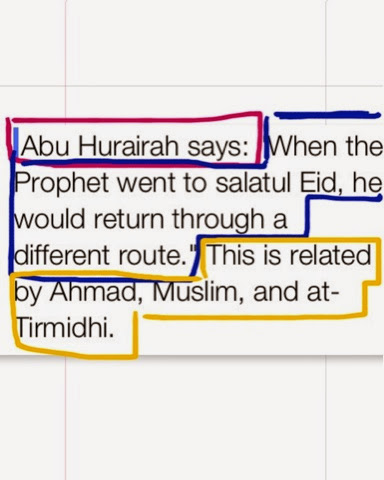 Abu Hurairah says: When the
Prophet went to salatul Eid, he
would return through a
different route." This is related
by Ahmad, Muslim, and at-
Tirmidhi.